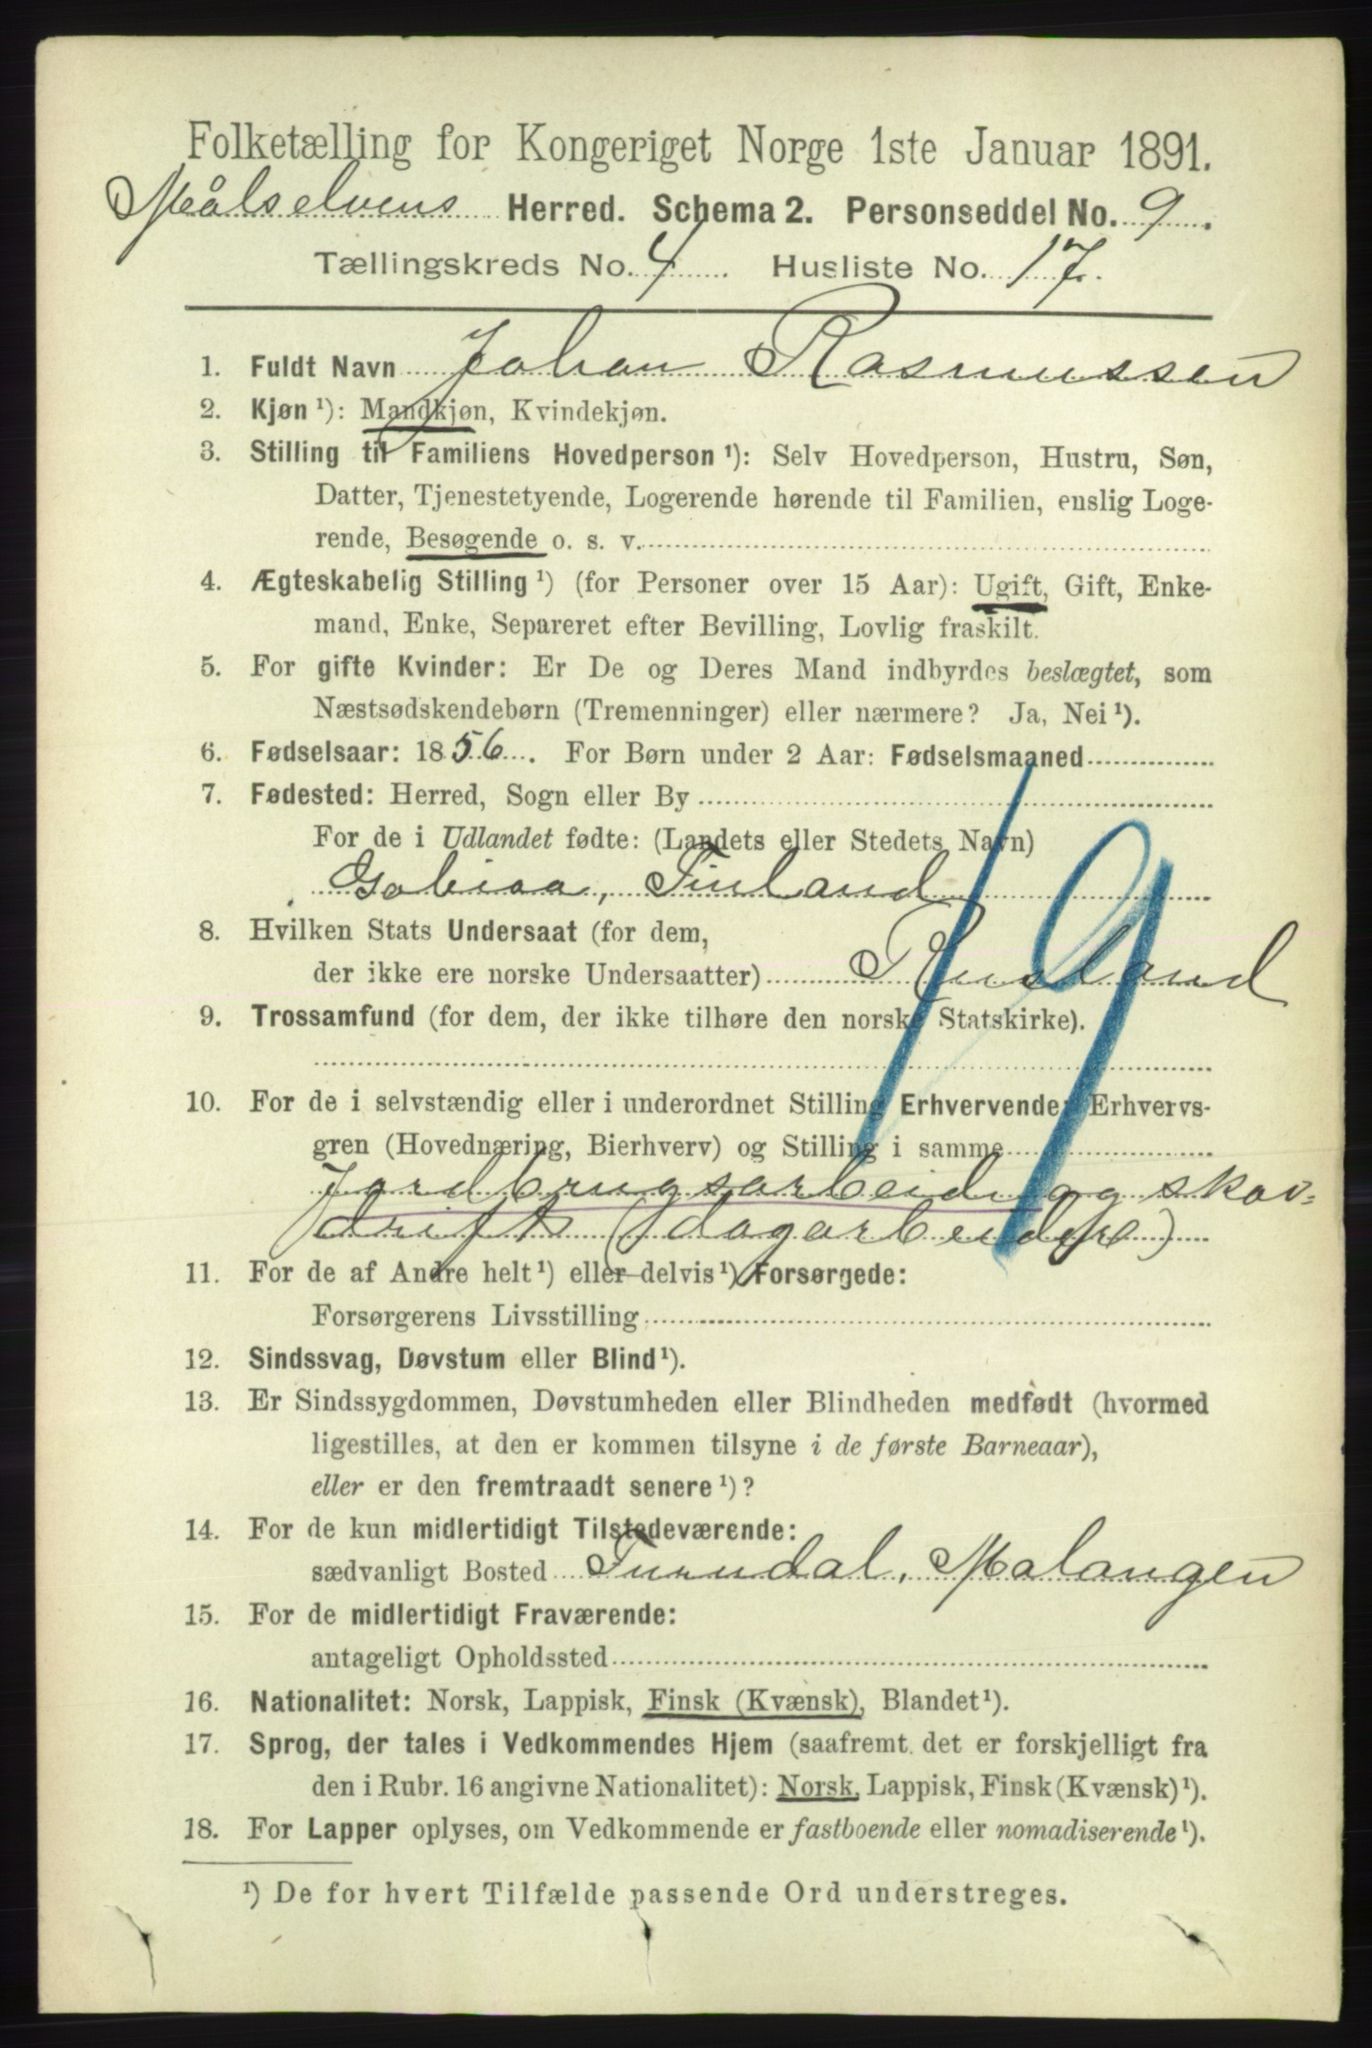 Folketælling for Kongeriget Norge 1ste Januar 1891.
Målselvens Herred. Schema 2. Personseddel No. 9.
Tællingskreds No. 4 Husliste No. 17.
1. Fuldt Navn Johan Rasmussen
2. Kjøn ¹): Mandkjøn, Kvindekjøn.
3. Stilling til Familiens Hovedperson ¹): Selv Hovedperson, Hustru, Søn,
Datter, Tjenestetyende, Logerende hørende til Familien, enslig Loge-
rende, Besøgende o. s. v.
4. Ægteskabelig Stilling ¹) (for Personer over 15 Aar): Ugift, Gift, Enke-
mand, Enke, Separeret efter Bevilling, Lovlig fraskilt.
5. For gifte Kvinder: Er De og Deres Mand indbyrdes beslægtet, som
Næstsødskendebørn (Tremenninger) eller nærmere? Ja, Nei ¹).
6. Fødselsaar: 1856. For Børn under 2 Aar: Fødselsmaaned
7. Fødested: Herred, Sogn eller By
For de i Udlandet fødte: (Landets eller Stedets Navn)
Finland
8. Hvilken Stats Undersaat (for dem,
der ikke ere norske Undersaatter) Rusland
9. Trossamfund (for dem, der ikke tilhøre den norske Statskirke).
10. For de i selvstændig eller i underordnet Stilling Erhvervende: Erhvervs-
gren (Hovednæring, Bierhverv) og Stilling i samme
Jordbrugsarbeid og skov=
drift (dagarbeider)
11. For de af Andre helt ¹) eller delvis ¹) Forsørgede:
Forsørgerens Livsstilling
12. Sindssvag, Døvstum eller Blind ¹).
13. Er Sindssygdommen, Døvstumheden eller Blindheden medfødt (hvormed
ligestilles, at den er kommen tilsyne i de første Barneaar),
eller er den fremtraadt senere ¹)?
14. For de kun midlertidigt Tilstedeværende:
sædvanligt Bosted Malangen
15. For de midlertidigt Fraværende:
antageligt Opholdssted
16. Nationalitet: Norsk, Lappisk, Finsk (Kvænsk), Blandet ¹).
17. Sprog, der tales i Vedkommendes Hjem (saafremt det er forskjelligt fra
den i Rubr. 16 angivne Nationalitet): Norsk, Lappisk, Finsk (Kvænsk) ¹).
18. For Lapper oplyses, om Vedkommende er fastboende eller nomadiserende ¹).
¹) De for hvert Tilfælde passende Ord understreges.
19